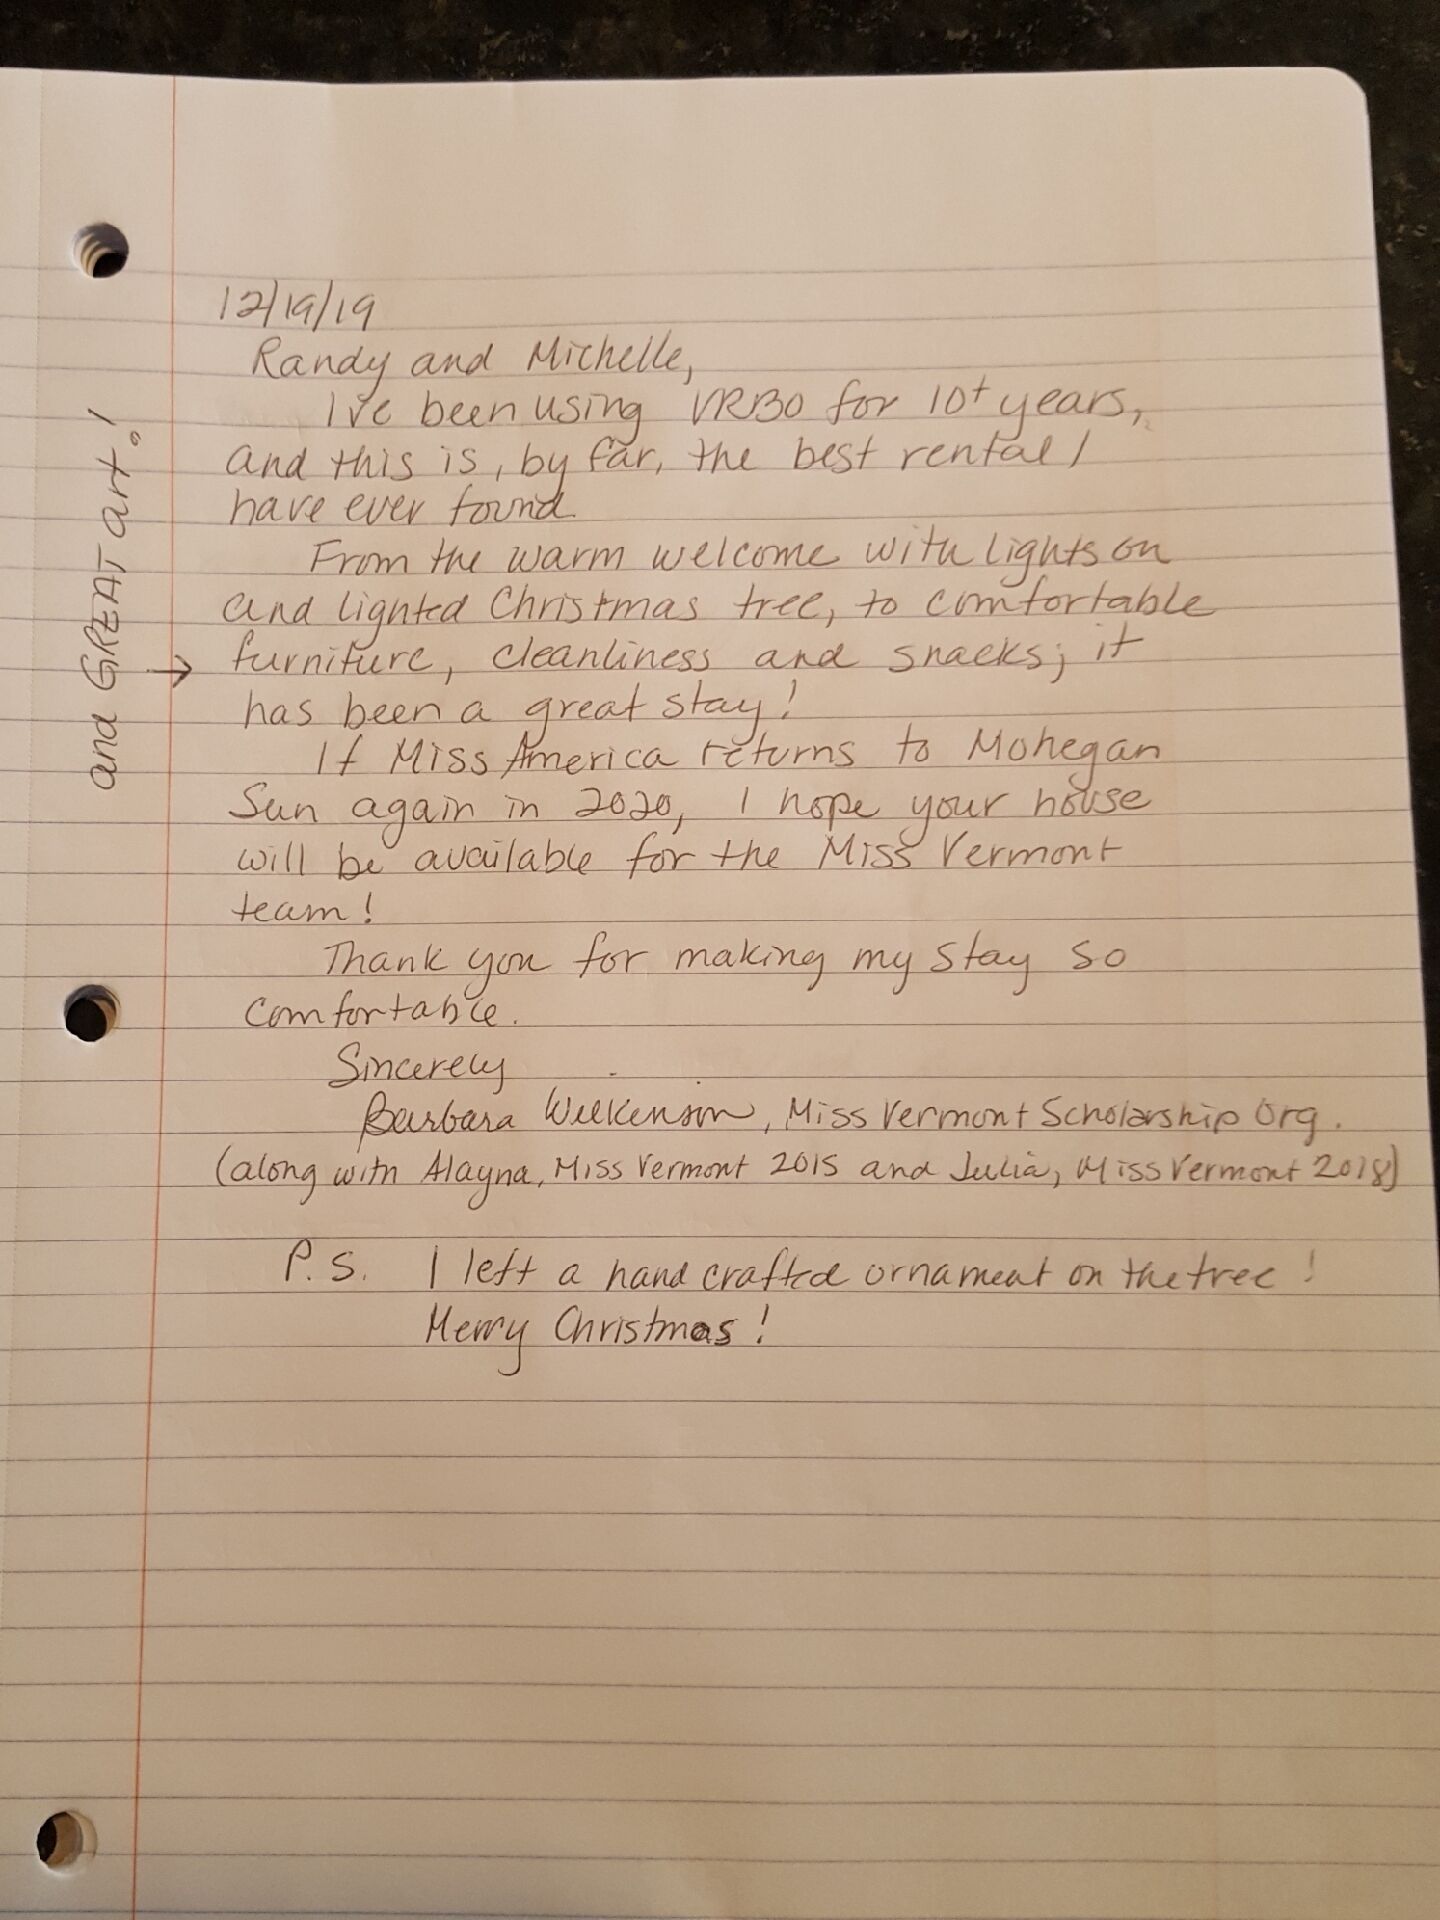 12/19/19
Randy and Michelle,
I've been using VRBO for 10+ years,
and this is, by far, the best rental I
have ever found.
From the warm welcome with lights on
and lighted Christmas tree, to comfortable
furniture, cleanliness and snacks; it
and GREAT art!
has been a great stay!
If Miss America returns to Mohegan
Sun again in 2020, I hope your house
will be available for the Miss Vermont
team!
Thank you for making my stay so
comfortable.
Sincerely
Barbara Wilkenson, Miss Vermont Scholarship Org.
(along with Alayna, Miss Vermont 2015 and Julia, Miss Vermont 2018)
P.S. I left a hand crafted ornament on the tree!
Merry Christmas!